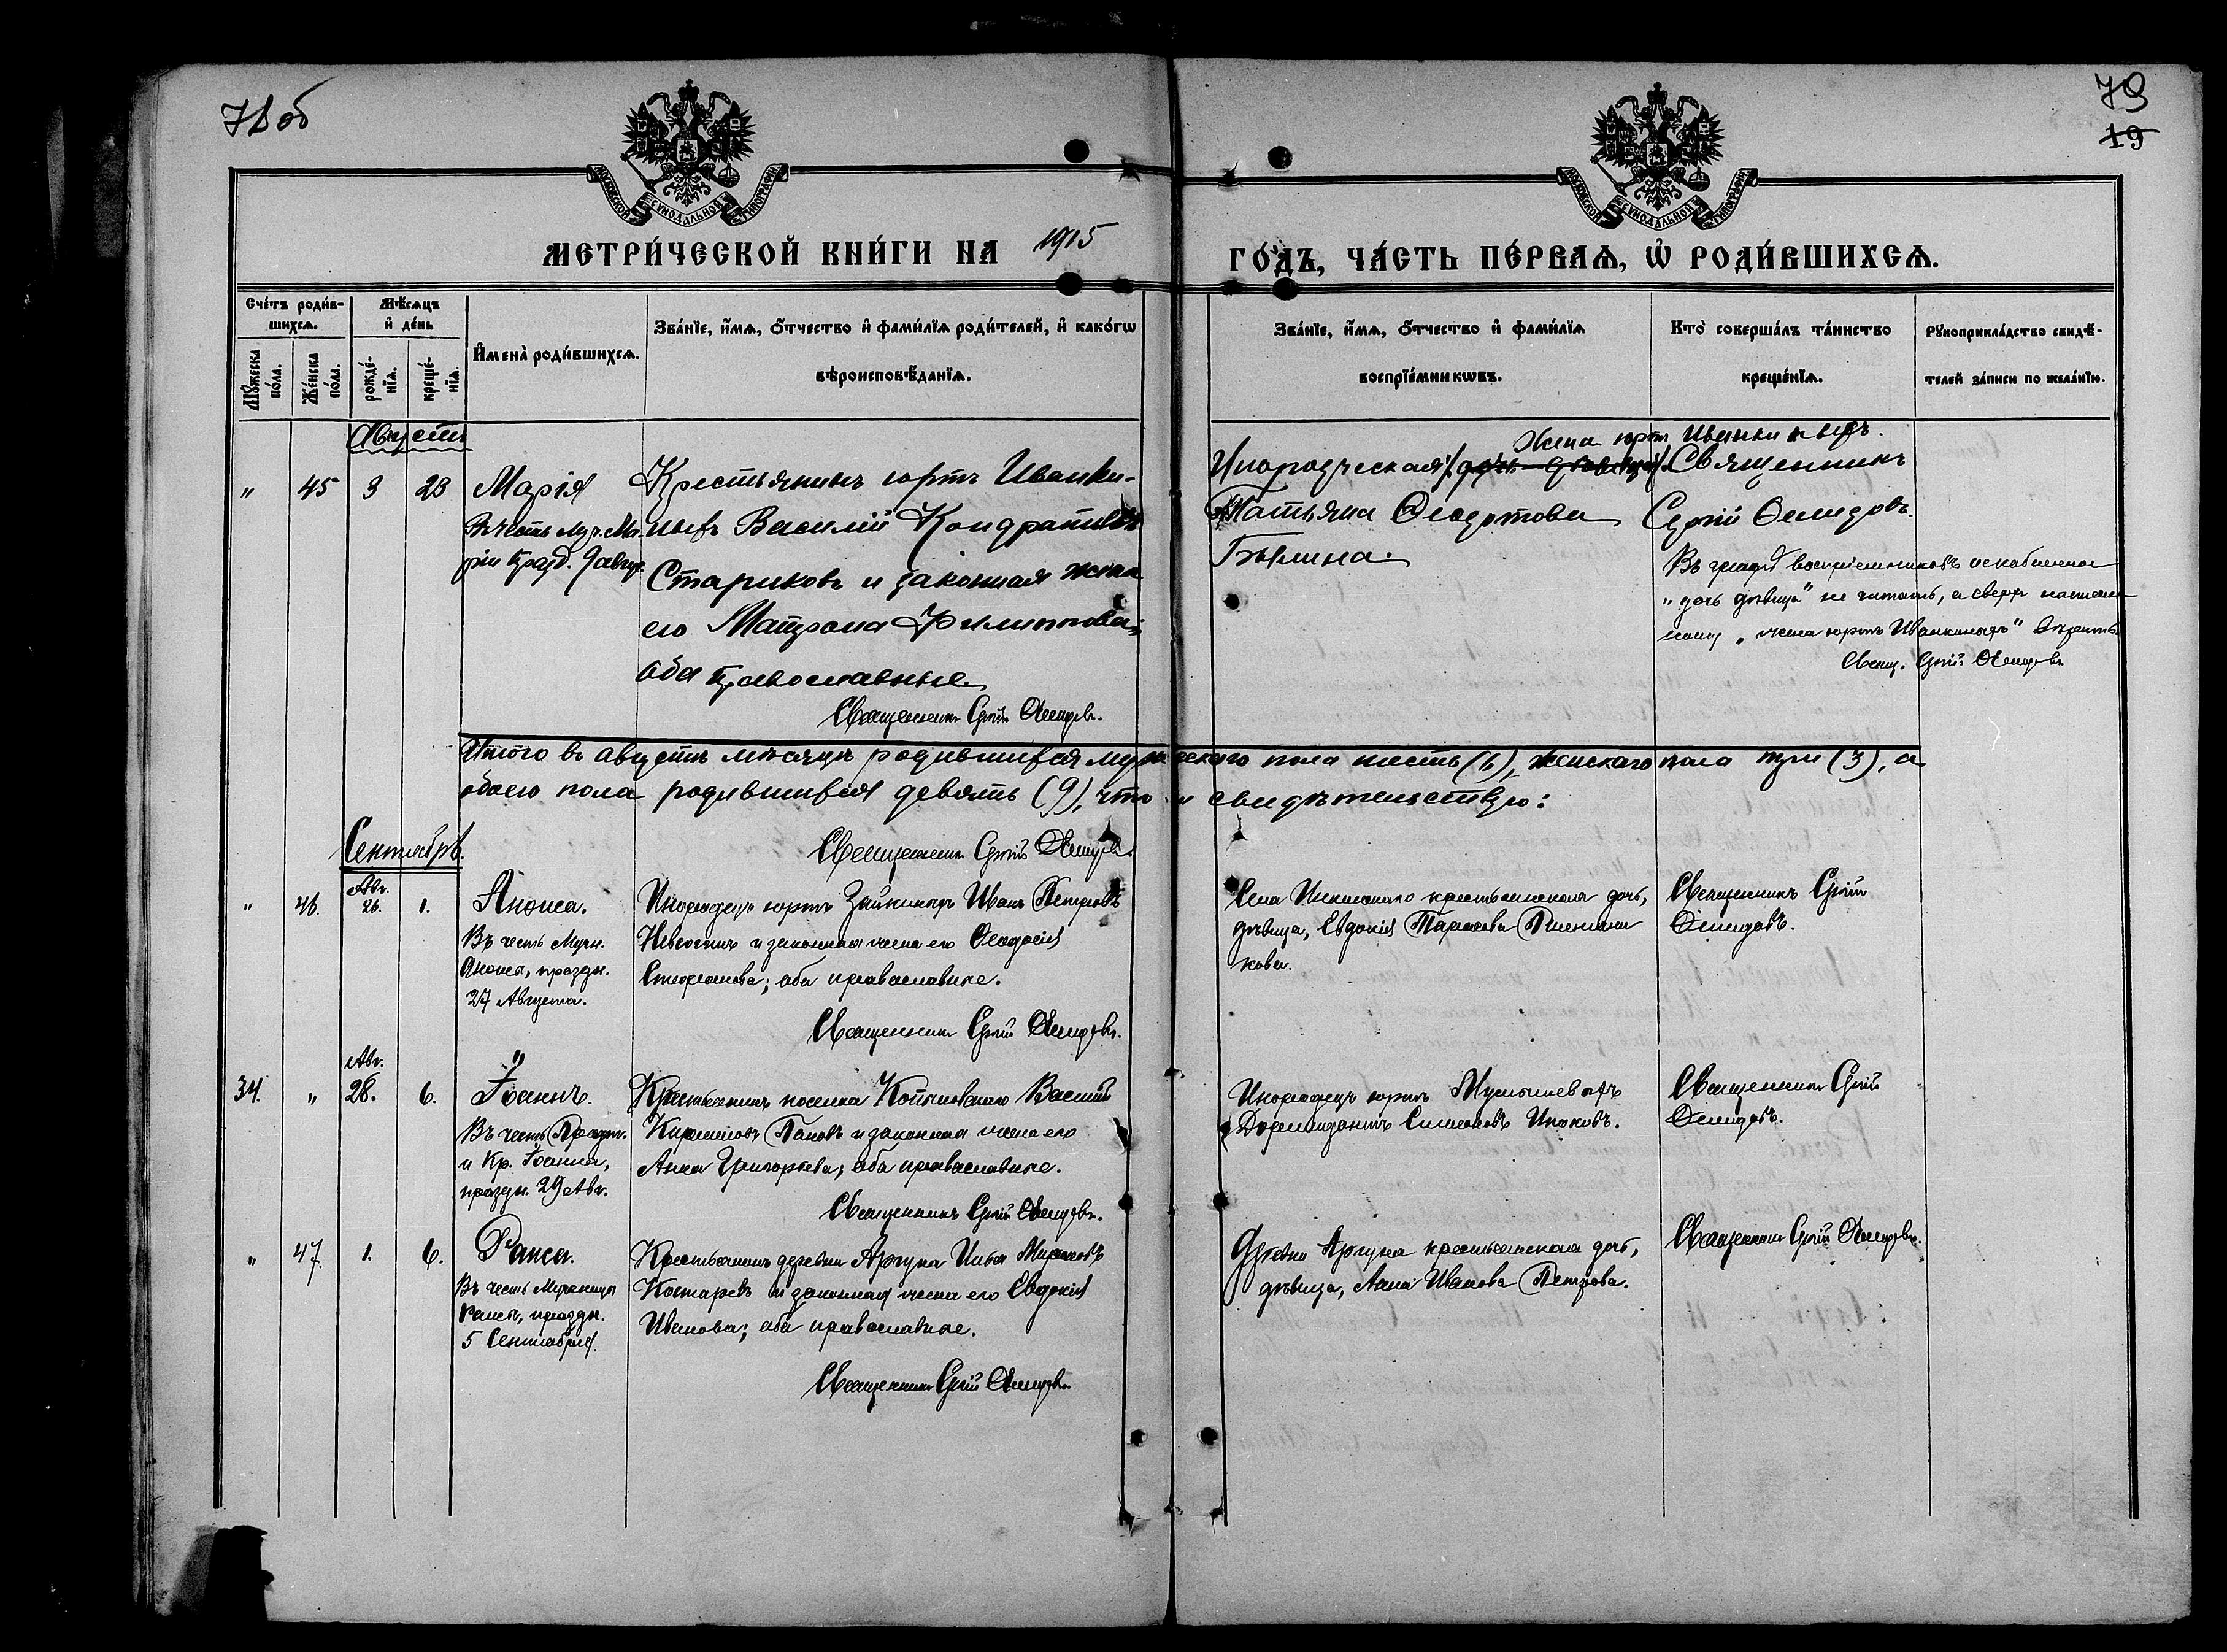 78об
79
19
МОСКОВСКОЙ СѴНОДАЛЬНОЙ ТИПОГРАФІИ
МОСКОВСКОЙ СѴНОДАЛЬНОЙ ТИПОГРАФІИ
МЕТРИ́ЧЕСКОЙ КНИ́ГИ НА 1915
ГО́ДЪ, ЧА́СТЬ ПЕ́РВАѦ, Ѡ҆ РОДИ́ВШИХСѦ.
Сче́тъ роди́в-
шихсѧ.
Мѣ́сѧцъ
и҆ де́нь
Мꙋ́жеска
по́ла.
Же́нска
по́ла.
рожде́-
нїѧ.
креще́-
нїѧ.
И҆мена̀ роди́вшихсѧ.
Зва́нїе, и҆́мѧ, ѻ҆́тчество и҆ фами́лїѧ роди́телей, и҆ како́гѡ
вѣроисповѣ́данїѧ.
Зва́нїе, и҆́мѧ, ѻ҆́тчество и҆ фами́лїѧ
воспрїе́мникѡвъ.
Кто̀ соверша́лъ та́инство
креще́нїѧ.
Рꙋкоприкла́дство свидѣ́-
телей за́писи по жела́нїю.
Августъ
" 45 3 23 Марія
Въ честь муч. Ма-
ріи празд. 9 авгус.
Крестьянинъ юртъ Иванки-
ныхъ Василій Кондратьевъ
Стариковъ и законная жена
его Матрона Филиппова;
оба православные.
Священникъ Сергій Демидовъ.
жена юртъ Иванкиныхъ.
Инородческая дочь девица
Татьяна Феодотова
Бѣлина.
Священникъ
Сергій Демидовъ.
Въ графѣ воспріемниковъ оскобленное
"дочь дѣвица" не читать, а сверх написан-
ному "жена юртъ Иванкиныхъ" вѣрить.
Свящ. Сергій Демидовъ
Итого въ августѣ мѣсяцѣ родившихся мужескаго пола шесть (6), женскаго пола три (3), а
обоего пола родившихся девять (9), что и свидѣтельствую:
Священникъ Сергій Демидовъ.
Сентябрь.
" 46. Авг. 26. 1. Анѳиса.
Въ честь Мучн.
Анѳисы, праздн.
27 Августа.
Инородецъ юртъ Зайкиныхъ Иванъ Петровъ
и законная жена его Ѳеодосія
Стефанова; оба православные.
Священникъ Сергій Демидовъ.
Села крестьянская дочь,
дѣвица, Евдокія Тарасова
кова.
Священникъ Сергій
Демидовъ.
34. " Авг. 28. 6. Іоаннъ.
Въ честь Предт.
и Кр. Іоанна,
праздн. 29 Авг.
Крестьянинъ поселка Василій
Пановъ и законная жена его
Анна Григорьева; оба православные.
Священникъ Сергій Демидовъ.
Инородецъ юртъ
Дормидонтъ Симеоновъ
Священникъ Сергій
Демидовъ.
" 47. 1. 6. Раиса.
Въ честь Мученицы
Раисы, праздн.
5 Сентября.
Крестьянинъ деревни Аргуна Илья
Костаревъ и законная жена его Евдокія
Иванова; оба православные.
Священникъ Сергій Демидовъ.
Деревни Аргуна крестьянская дочь,
дѣвица, Анна Иванова Петрова.
Священникъ Сергій Демидовъ.